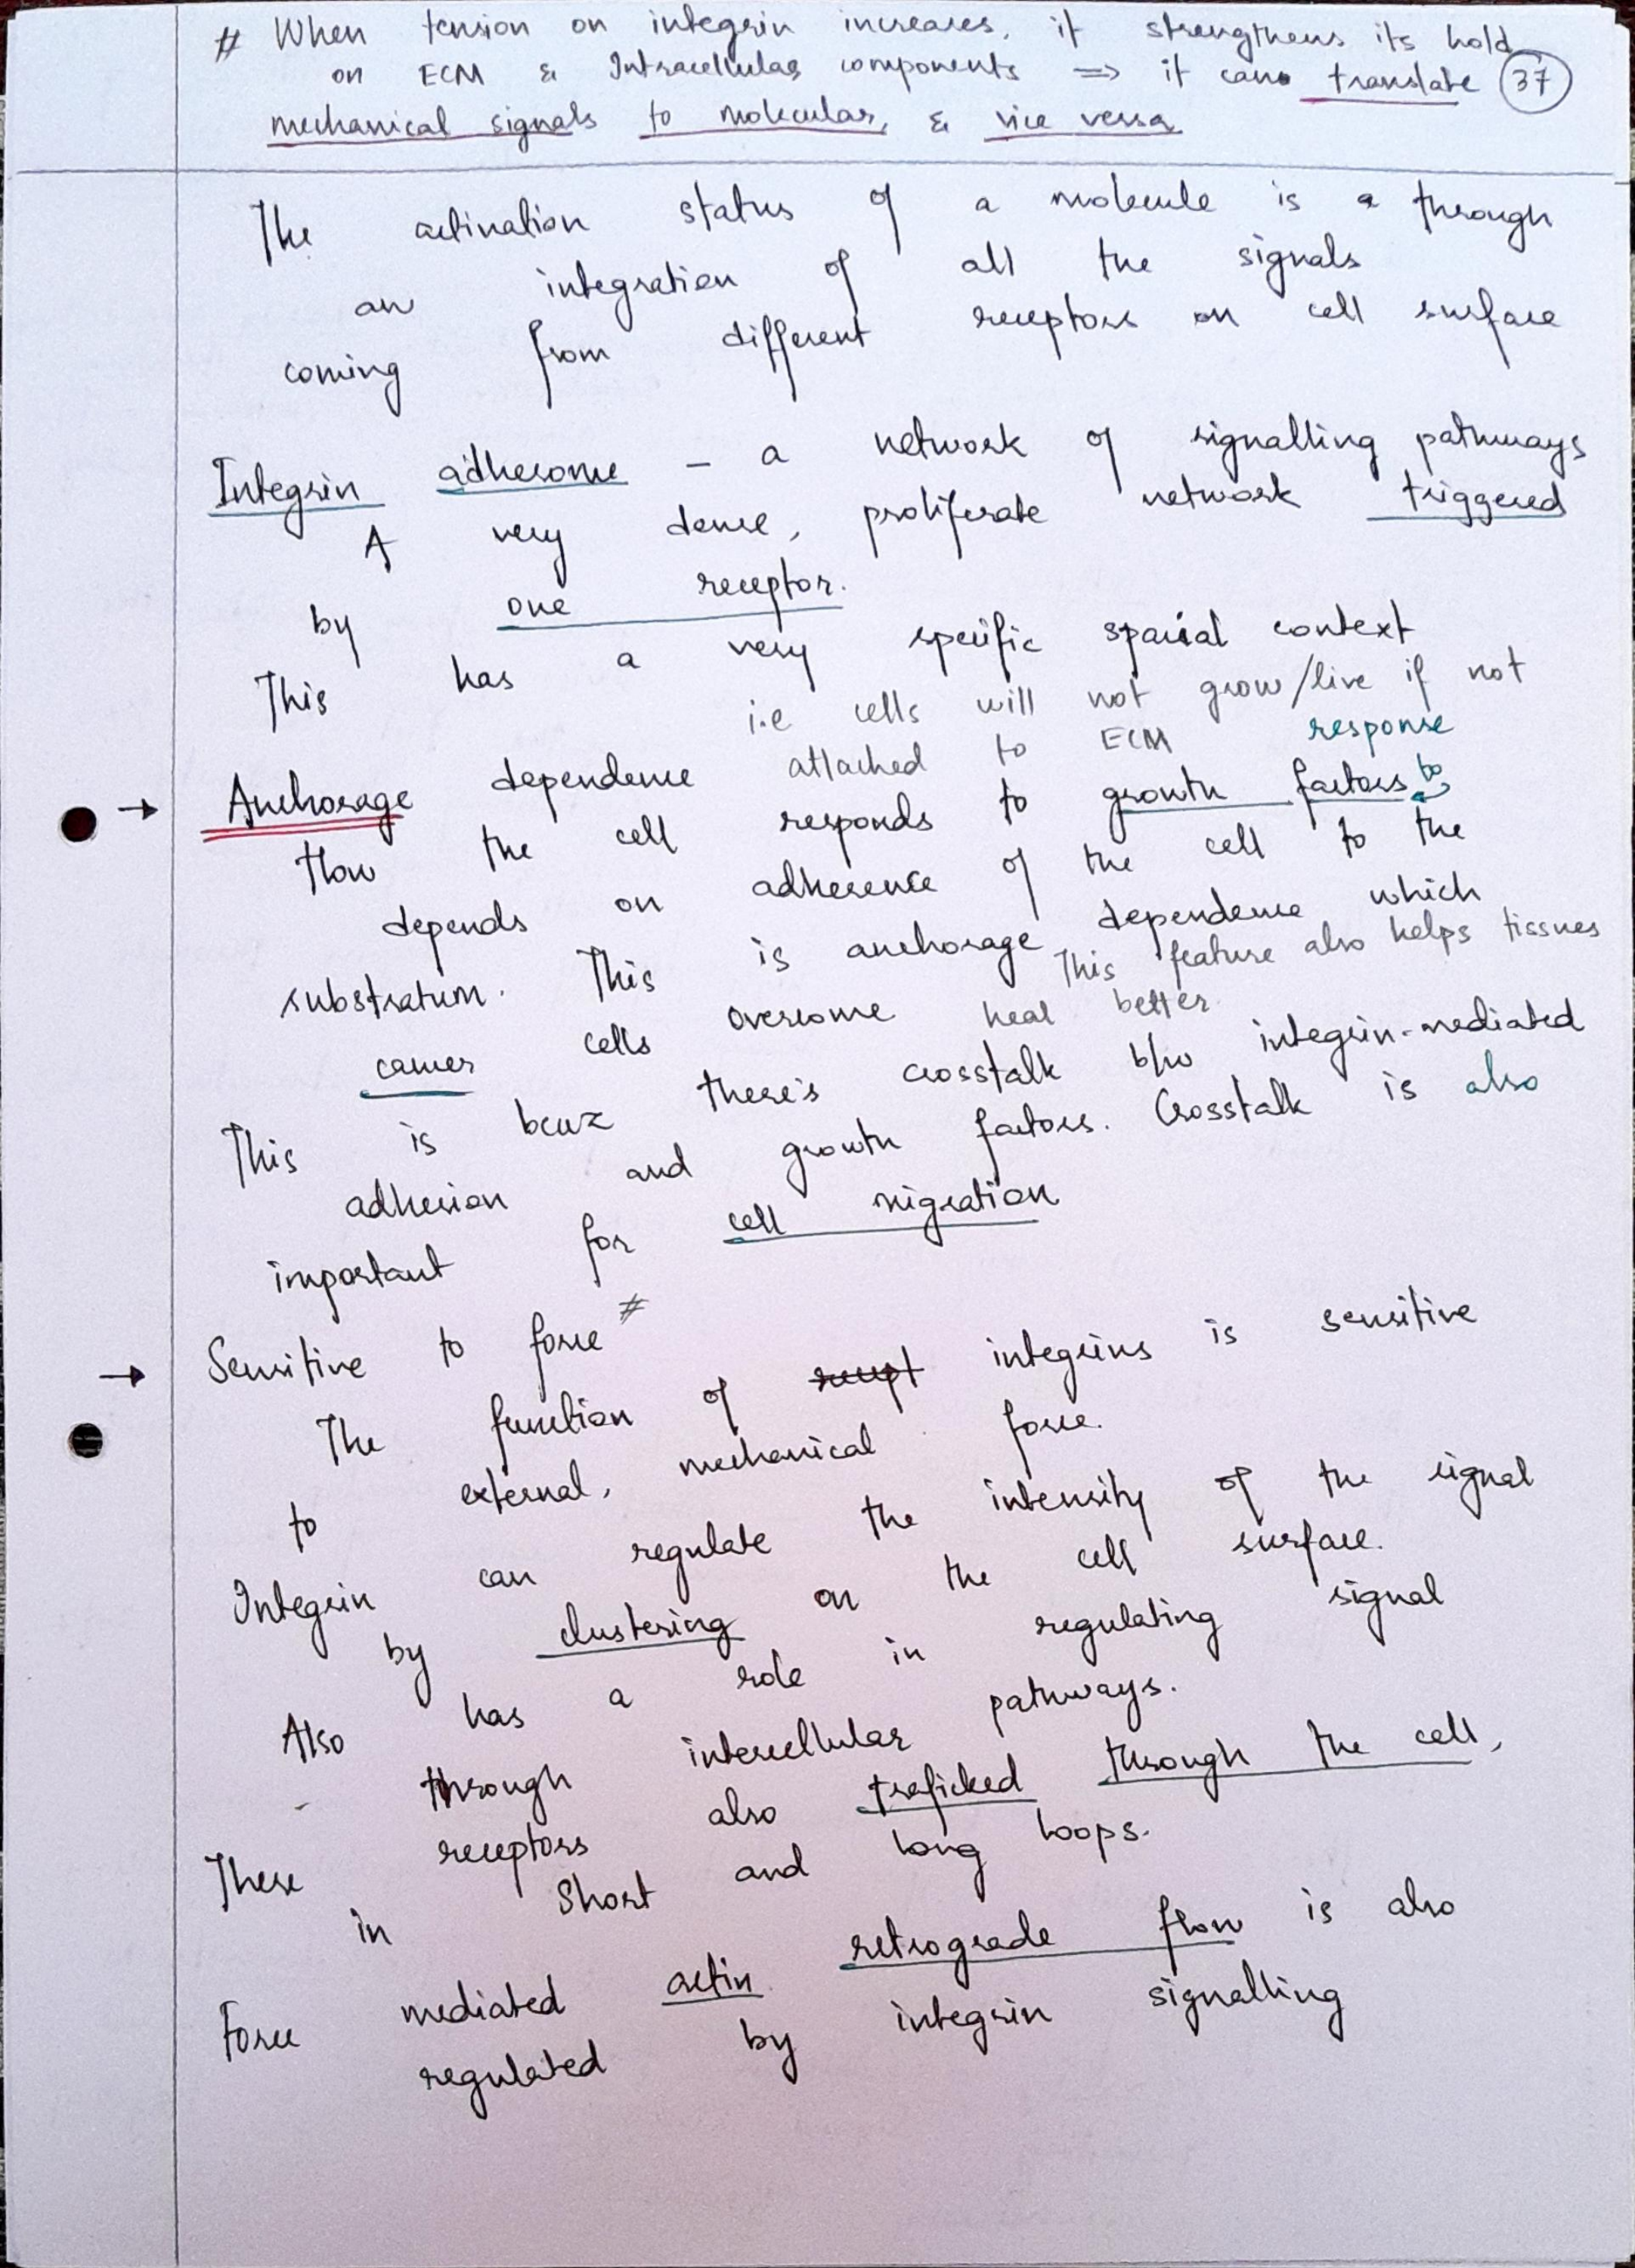 # When tension on integrin increases, it strengthens its hold
on ECM & Intracellular components => it can translate (37)
mechanical signals to molecular, & vice versa
The activation status of a molecule is a through
an integration of all the signals
coming from different receptors on cell surface
Integrin adhesome - a network of signalling pathways
A very dense, proliferate network triggered
by one receptor.
This has a very specific spacial context
i.e cells will not grow/live if not
→ Anchorage dependence attached to ECM response
How the cell responds to growth factors to
depends on adherence of the cell to the
substratum. This is anchorage dependence which
cancer cells overcome This feature also helps tissues
heal better.
This is becuz there's crosstalk b/w integrin-mediated
adhesion and growth factors. Crosstalk is also
important for cell migration
→ Sensitive to force #
The function of recept integrins is sensitive
to external, mechanical force.
Integrin can regulate the intensity of the signal
by clustering on the cell surface.
Also has a role in regulating signal
through intercellular pathways.
These receptors also traficked through the cell,
in short and long loops.
Force mediated actin retrograde flow is also
regulated by integrin signalling